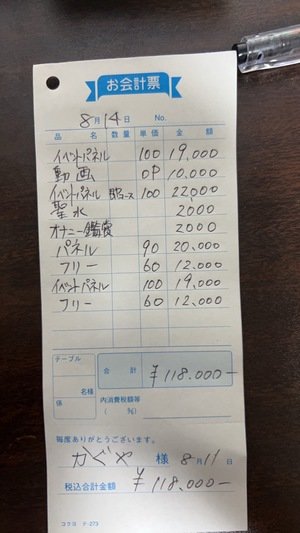 お会計票
8月14日 No.
品名 数量 単価 金額
イベントパネル 100 19,000
動画 OP 10,000
イベントパネル 100 22,000
聖水 2000
オナニー鑑賞 2000
パネル 90 20,000
フリー 60 12,000
イベントパネル 100 19,000
フリー 60 12,000
テーブル
合計 ¥118.000-
名様
係
内消費税額等
( %)
毎度ありがとうございます。
かぐや 様 8月11日
税込合計金額 ¥118,000-
コクヨ テ-273